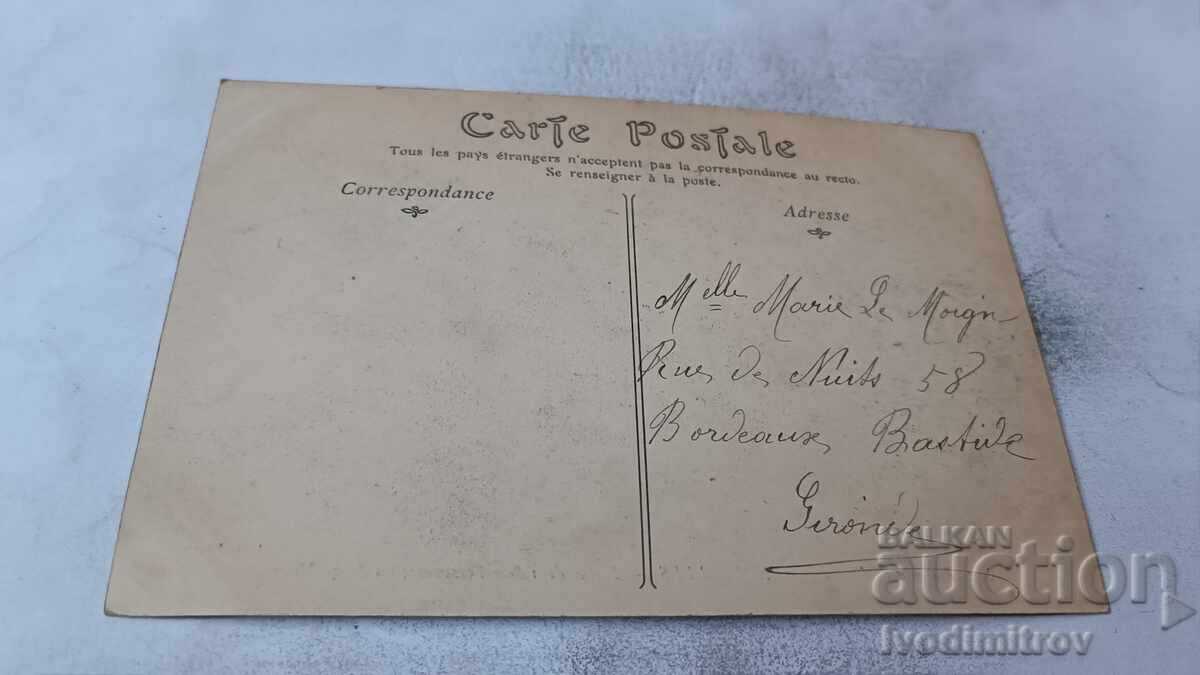 Carte Postale
Tous les pays étrangers n'acceptent pas la correspondance au recto.
Se renseigner à la poste.
Correspondance
Adresse
Melle Marie Le Moign
Rue de Nuits 58
Bordeaux Bastide
Gironde
BALKAN
auction
ivodimitrov